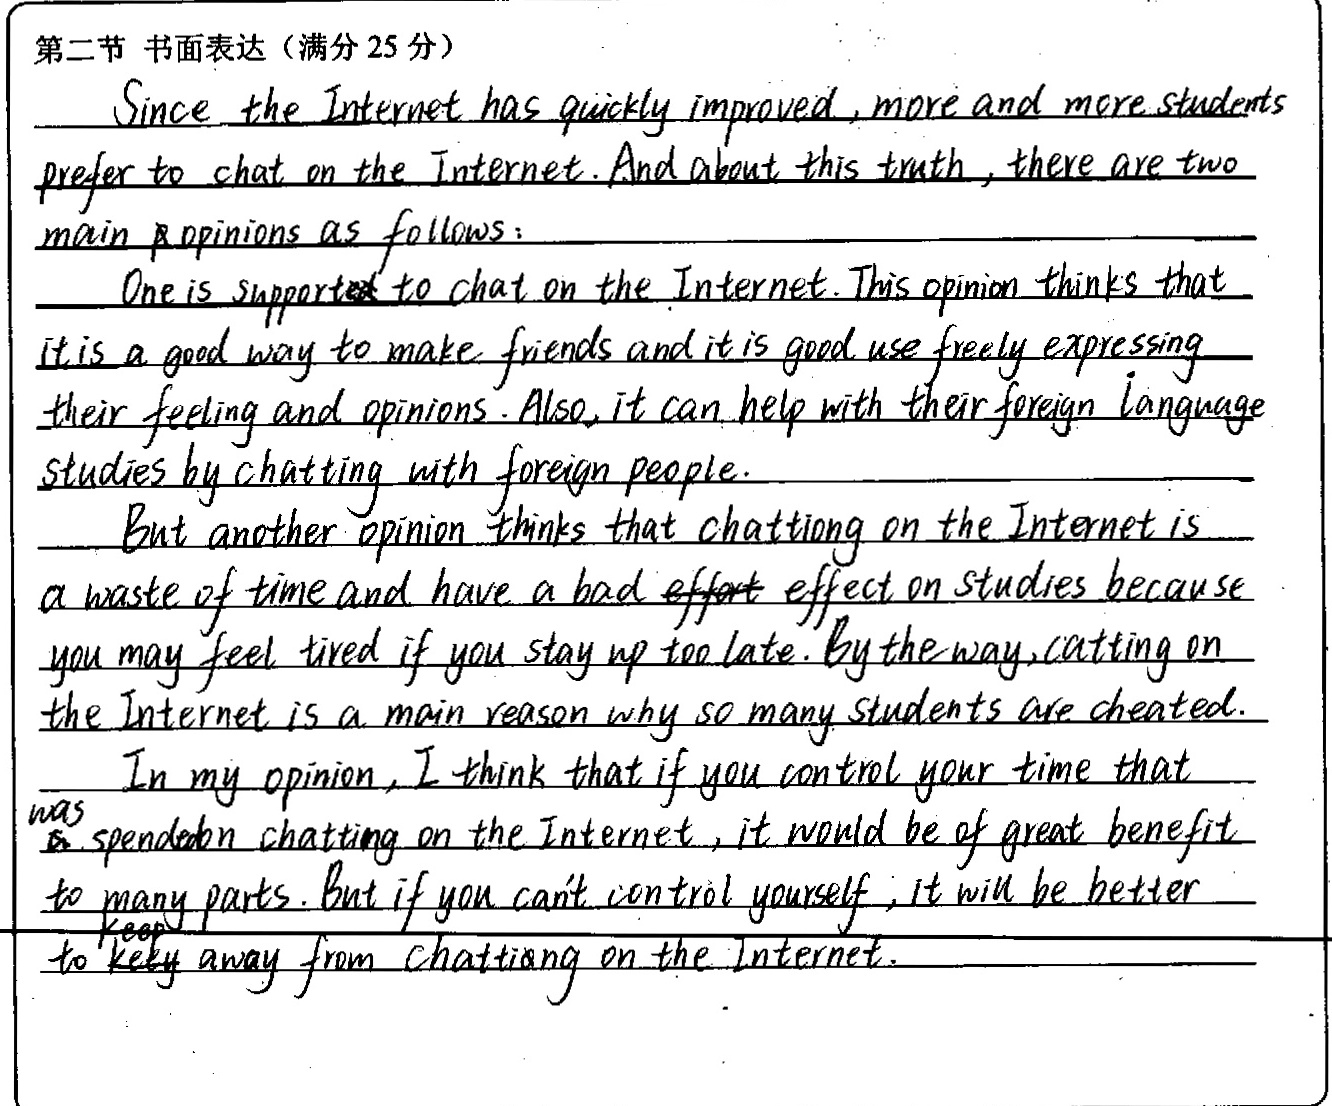 第二节 书面表达（满分 25 分）
Since the Internet has quickly improved, more and more students
prefer to chat on the Internet. And about this truth, there are two
main opinions as follows:
One is supported to chat on the Internet. This opinion thinks that
it is a good way to make friends and it is good use freely expressing
their feeling and opinions. Also, it can help with their foreign language
studies by chatting with foreign people.
But another opinion thinks that chattiong on the Internet is
a waste of time and have a bad effort effect on studies because
you may feel tired if you stay up too late. By the way, catting on
the Internet is a main reason why so many students are cheated.
In my opinion, I think that if you control your time that
was
spended on chatting on the Internet, it would be of great benefit
to many parts. But if you can't control yourself, it will be better
keep
to away from chattiong on the Internet.